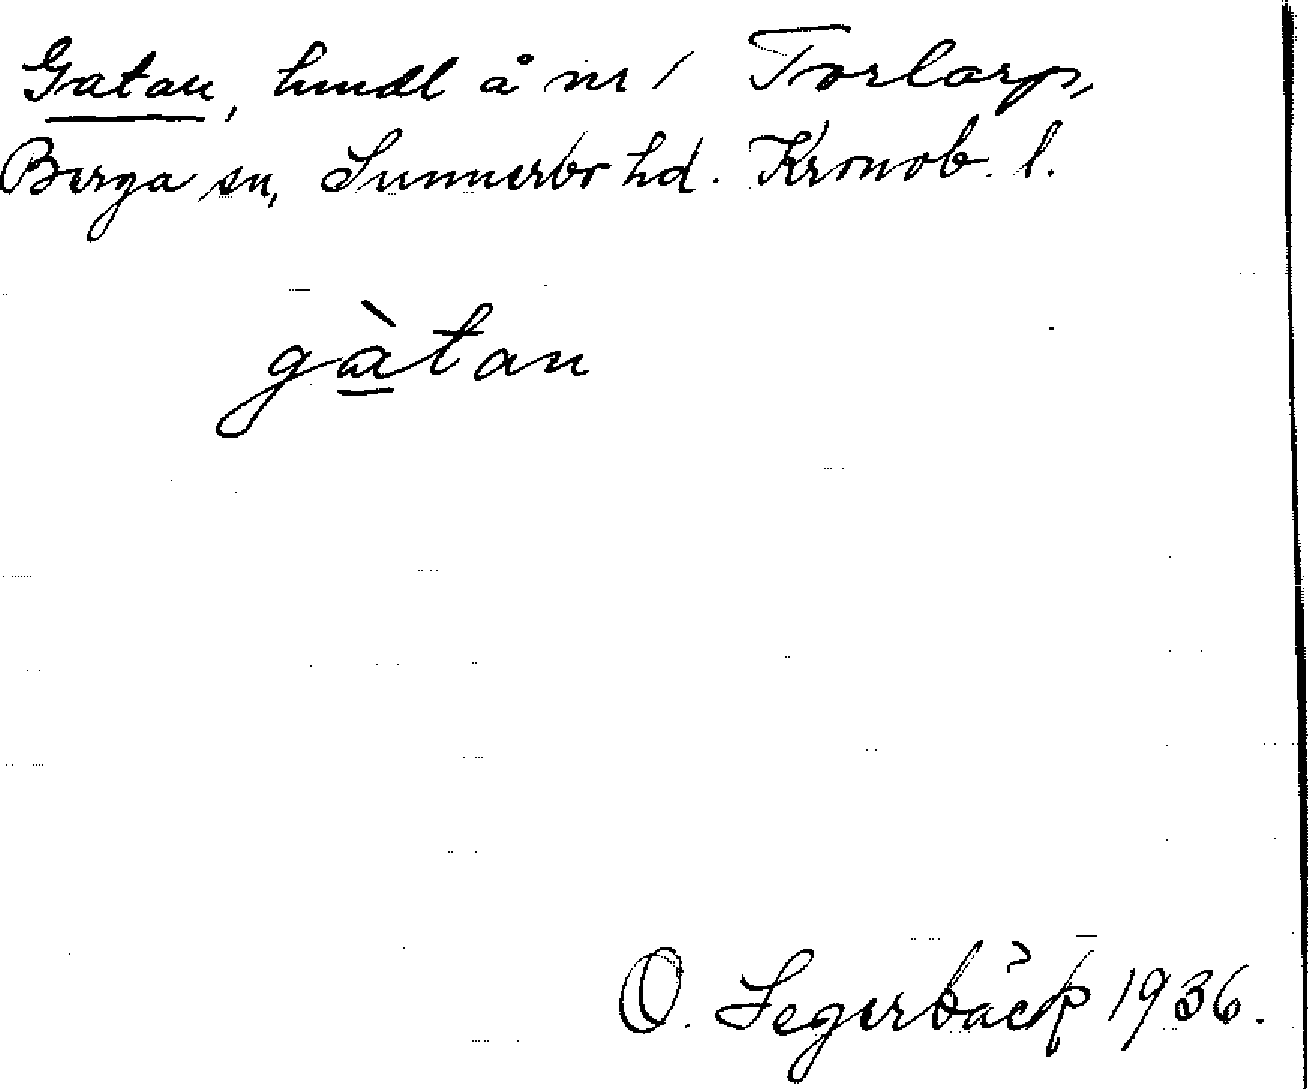 Gatan, hmdl å nr 1 Torlarp,
Berga sn, Sunnerbo hd. Kronob. l.
gàtan
O. Segerbäck 1936.